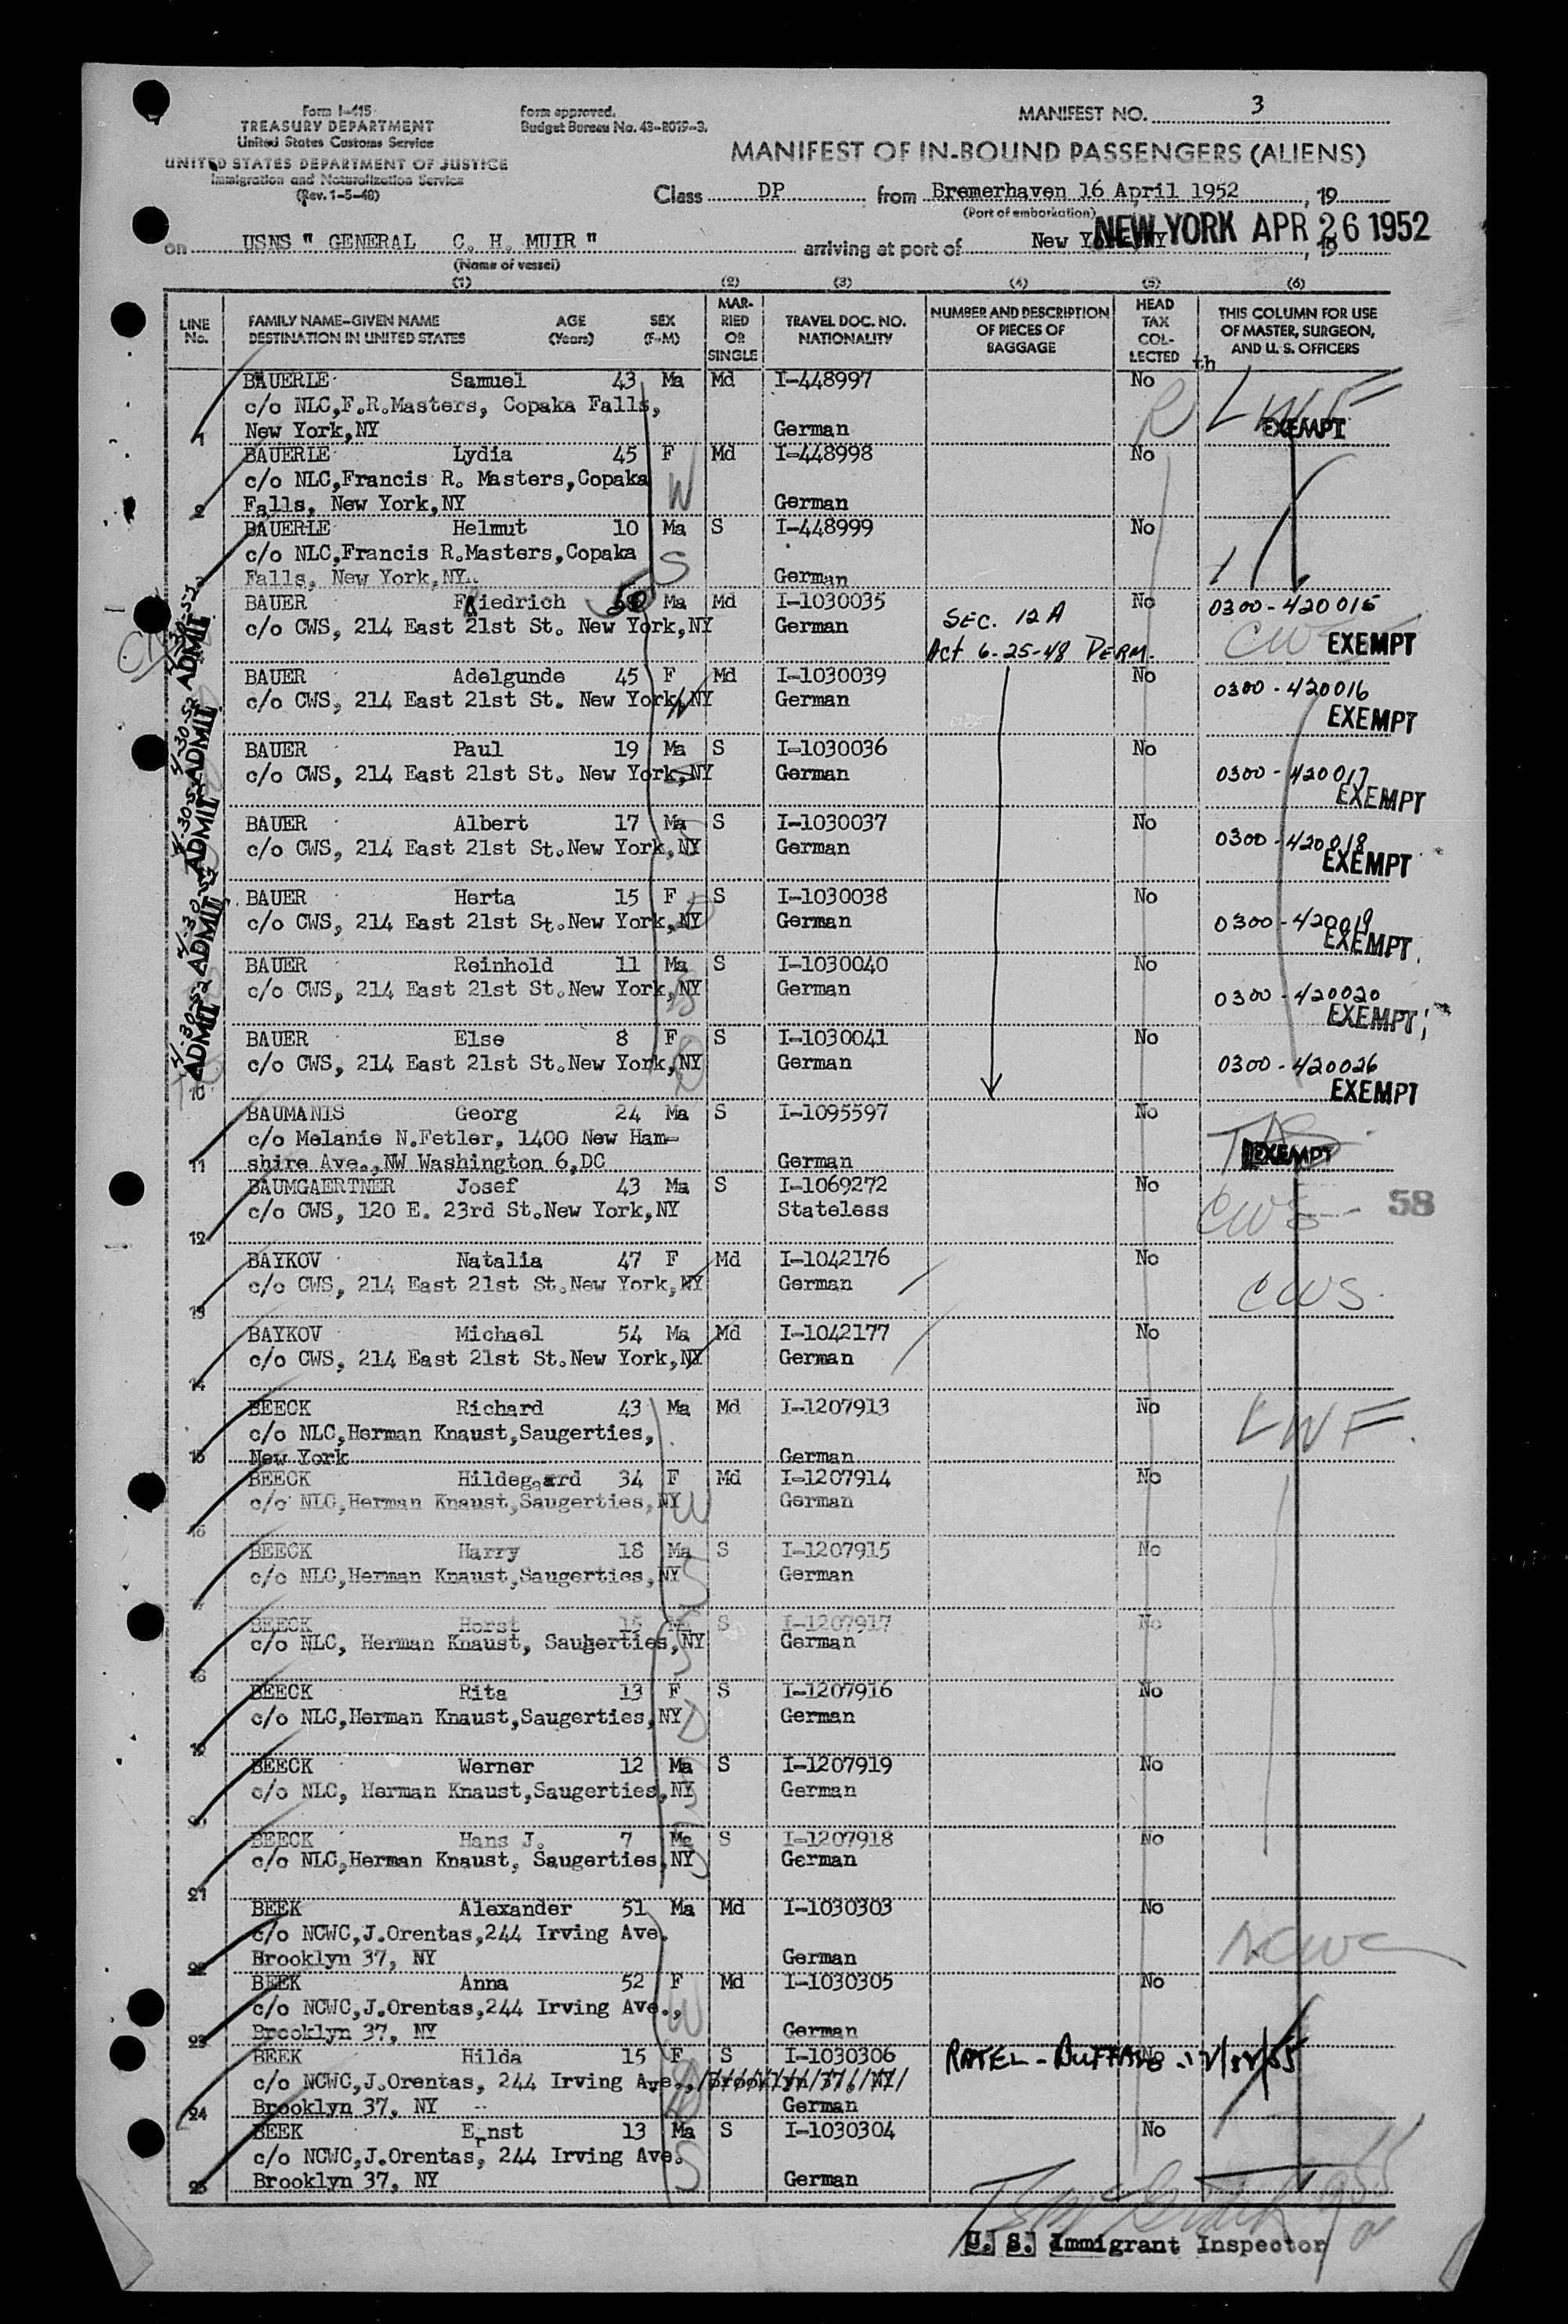 Form I-415
TREASURY DEPARTMENT
United States Customs Service
UNITED STATES DEPARTMENT OF JUSTICE
Immigration and Naturalization Service
(Rev. 1-5-48)
Form approved.
Budget Bureau No. 43-R019-3.
MANIFEST NO. 3
MANIFEST OF IN-BOUND PASSENGERS (ALIENS)
Class DP from Bremerhaven 16 April 1952, 19
(Port of embarkation)
on USNS " GENERAL C. H. MUIR " arriving at port of New York, NY, 19
NEW YORK APR 26 1952
(Name of vessel)
(1) (2) (3) (4) (5) (6)
LINE No.
FAMILY NAME-GIVEN NAME AGE (Years) SEX (F-M)
DESTINATION IN UNITED STATES
MARRIED OR SINGLE
TRAVEL DOC. NO. NATIONALITY
NUMBER AND DESCRIPTION OF PIECES OF BAGGAGE
HEAD TAX COLLECTED
THIS COLUMN FOR USE OF MASTER, SURGEON, AND U. S. OFFICERS
th
BAUERLE Samuel 43 Ma Md I-448997 No LWF
c/o NLC,F.R.Masters, Copaka Falls,
1 New York,NY German EXEMPT
BAUERLE Lydia 45 F Md I-448998 No
c/o NLC,Francis R. Masters,Copaka W
2 Falls, New York,NY German
BAUERLE Helmut 10 Ma S I-448999 No
c/o NLC,Francis R.Masters,Copaka S
Falls, New York,NY. German
BAUER Friedrich 50 Ma Md I-1030035 No 0300-420015
c/o CWS, 214 East 21st St. New York,NY German CWS EXEMPT
SEC. 12A
Act 6-25-48 PERM.
BAUER Adelgunde 45 F Md I-1030039 No 0300-420016
c/o CWS, 214 East 21st St. New York,NY German EXEMPT
BAUER Paul 19 Ma S I-1030036 No
c/o CWS, 214 East 21st St. New York,NY German 0300-420017
EXEMPT
BAUER Albert 17 Ma S I-1030037 No 0300-420018
c/o CWS, 214 East 21st St.New York,NY German EXEMPT
BAUER Herta 15 F S I-1030038 No
c/o CWS, 214 East 21st St.New York,NY German 0300-420019
EXEMPT
BAUER Reinhold 11 Ma S I-1030040 No
c/o CWS, 214 East 21st St.New York,NY German 0300-420020
EXEMPT
BAUER Else 8 F S I-1030041 No
c/o CWS, 214 East 21st St.New York,NY German 0300-420026
10 EXEMPT
ADMIT
ADMIT
ADMIT
ADMIT
ADMIT
BAUMANIS Georg 24 Ma S I-1095597 No
c/o Melanie N.Fetler, 1400 New Ham-
11 shire Ave.,NW Washington 6,DC German EXEMPT
BAUMGAERTNER Josef 43 Ma S I-1069272 No
c/o CWS, 120 E. 23rd St.New York,NY Stateless CWS 58
12
BAYKOV Natalia 47 F Md I-1042176 No
c/o CWS, 214 East 21st St.New York,NY German CWS
13
BAYKOV Michael 54 Ma Md I-1042177 No
c/o CWS, 214 East 21st St.New York,NY German
14
BEECK Richard 43 Ma Md I-1207913 No LWF
c/o NLC,Herman Knaust,Saugerties,
15 New York German
BEECK Hildegard 34 F Md I-1207914 No
c/o NLC,Herman Knaust,Saugerties,NY W German
16
BEECK Harry 18 Ma S I-1207915 No
c/o NLC,Herman Knaust,Saugerties,NY S German
BEECK Horst 15 Ma S I-1207917 No
c/o NLC, Herman Knaust, Saugerties,NY S German
18
BEECK Rita 13 F S I-1207916 No
c/o NLC,Herman Knaust,Saugerties,NY D German
19
BEECK Werner 12 Ma S I-1207919 No
c/o NLC, Herman Knaust,Saugerties,NY German
20
BEECK Hans J. 7 Ma S I-1207918 No
c/o NLC,Herman Knaust, Saugerties,NY German
21
BEEK Alexander 51 Ma Md I-1030303 No
c/o NCWC,J.Orentas,244 Irving Ave. NCWC
22 Brooklyn 37, NY German
BEEK Anna 52 F Md I-1030305 No
c/o NCWC,J.Orentas,244 Irving Ave., W
23 Brooklyn 37, NY German
BEEK Hilda 15 F S I-1030306 No
c/o NCWC,J.Orentas, 244 Irving Ave.,Brooklyn 37, NY
24 Brooklyn 37, NY German
BEEK Ernst 13 Ma S I-1030304 No
c/o NCWC,J.Orentas, 244 Irving Ave. S
25 Brooklyn 37, NY German
U. S. Immigrant Inspector